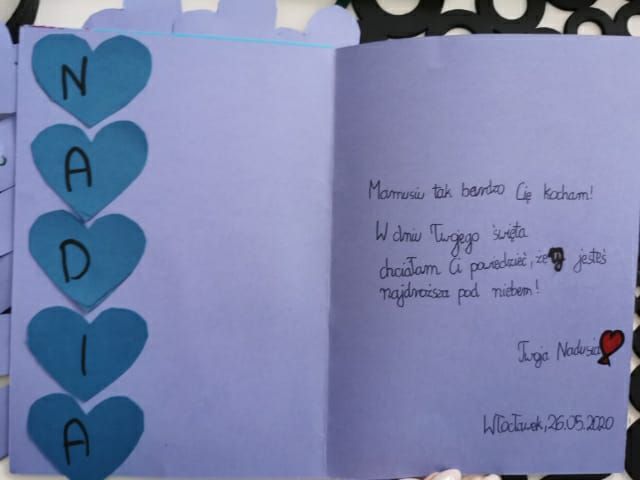 N
A
D
I
A
Mamusiu tak bardzo Cię kocham!
W dniu Twojego święta
chciałam Ci powiedzieć, że jesteś
najdroższa pod niebem!
Twoja Nadusia
Włocławek, 26.05.2020